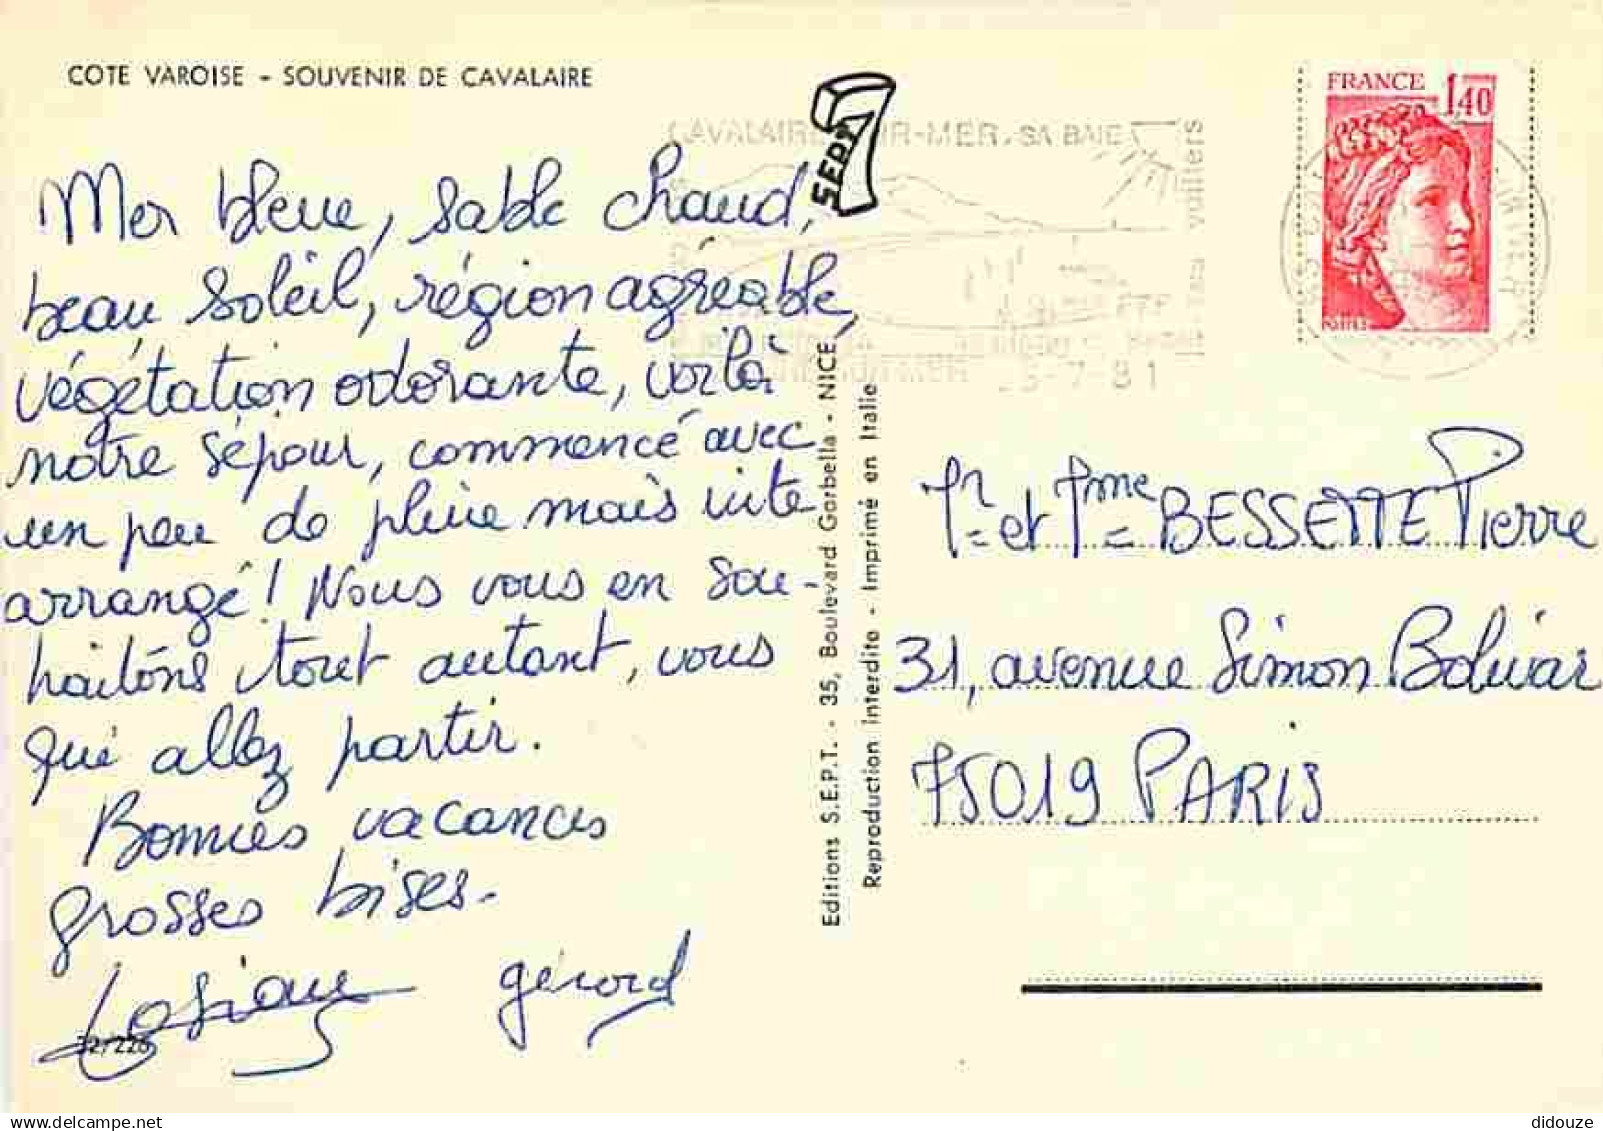 COTE VAROISE - SOUVENIR DE CAVALAIRE
Mer bleue, sable chaud,
beau soleil, région agréable,
végétation odorante, voilà
notre séjour, commencé avec
un peu de pluie mais vite
arrangé ! Nous vous en sou-
haitons tout autant, vous
qui allez partir.
Bonnes vacances
grosses bises.
gérard
32/226
SEPT
7
CAVALAIRE SUR-MER. SA BAIE
voiliers
5-7-81
FRANCE
1,40
POSTES
Editions S.E.P.T. - 35, Boulevard Gorbella - NICE
Reproduction interdite - Imprimé en Italie
Mr et Mme BESSETTE Pierre
31, avenue Simon Bolivar
75019 PARIS
didouze